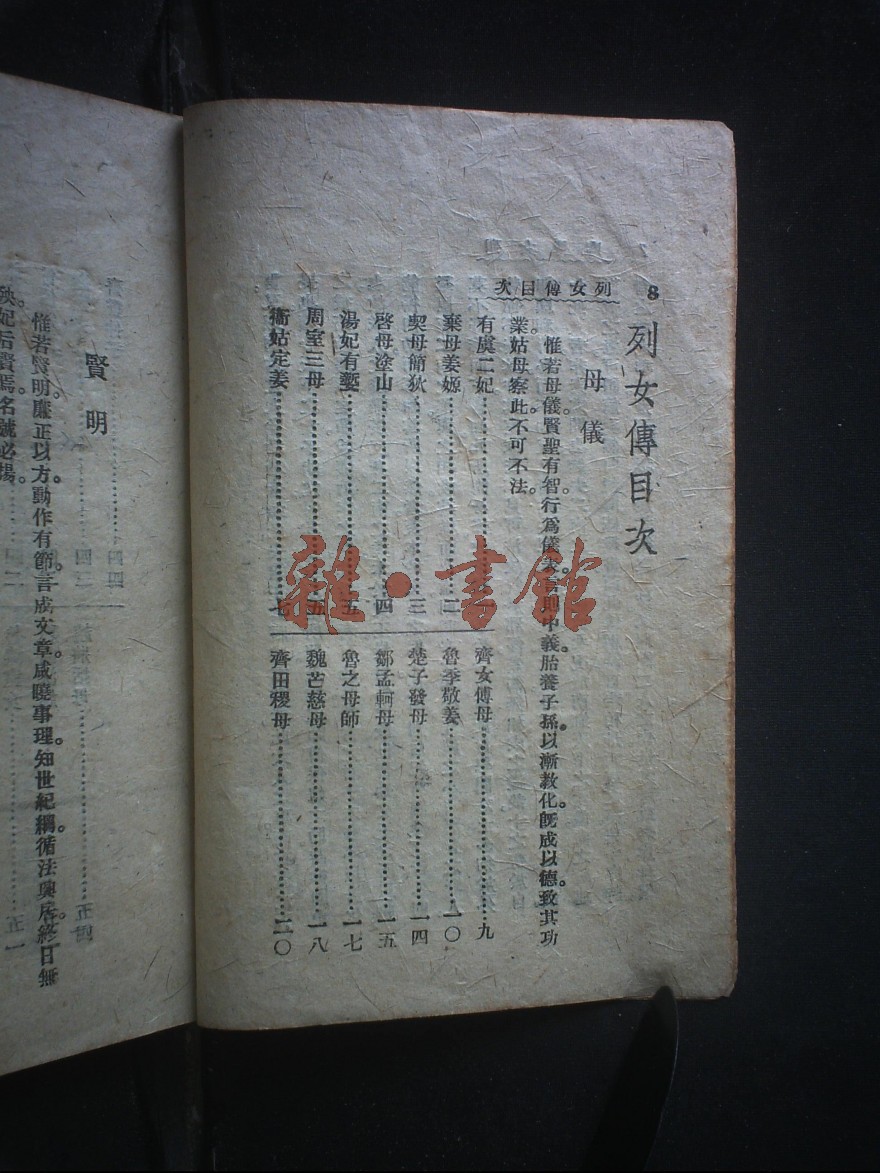 8
列女傳目次
列女傳目次
母儀
惟若母儀。賢聖有智。行為儀表。言則中義。胎養子孫。以漸教化。既成以德。致其功
業。姑母察此。不可不法。
有虞二妃
棄母姜嫄 二
契母簡狄 三
啓母塗山 四
湯妃有㜪 五
周室三母 五
衞姑定姜 七
齊女傅母 九
魯季敬姜 一〇
楚子發母 一四
鄒孟軻母 一五
魯之母師 一七
魏芒慈母 一八
齊田稷母 二〇
賢明
惟若賢明。廉正以方。動作有節。言成文章。咸曉事理。知世紀綱。循法興居。終日無
殃。妃后賢焉。名號必揚。
雜·書館